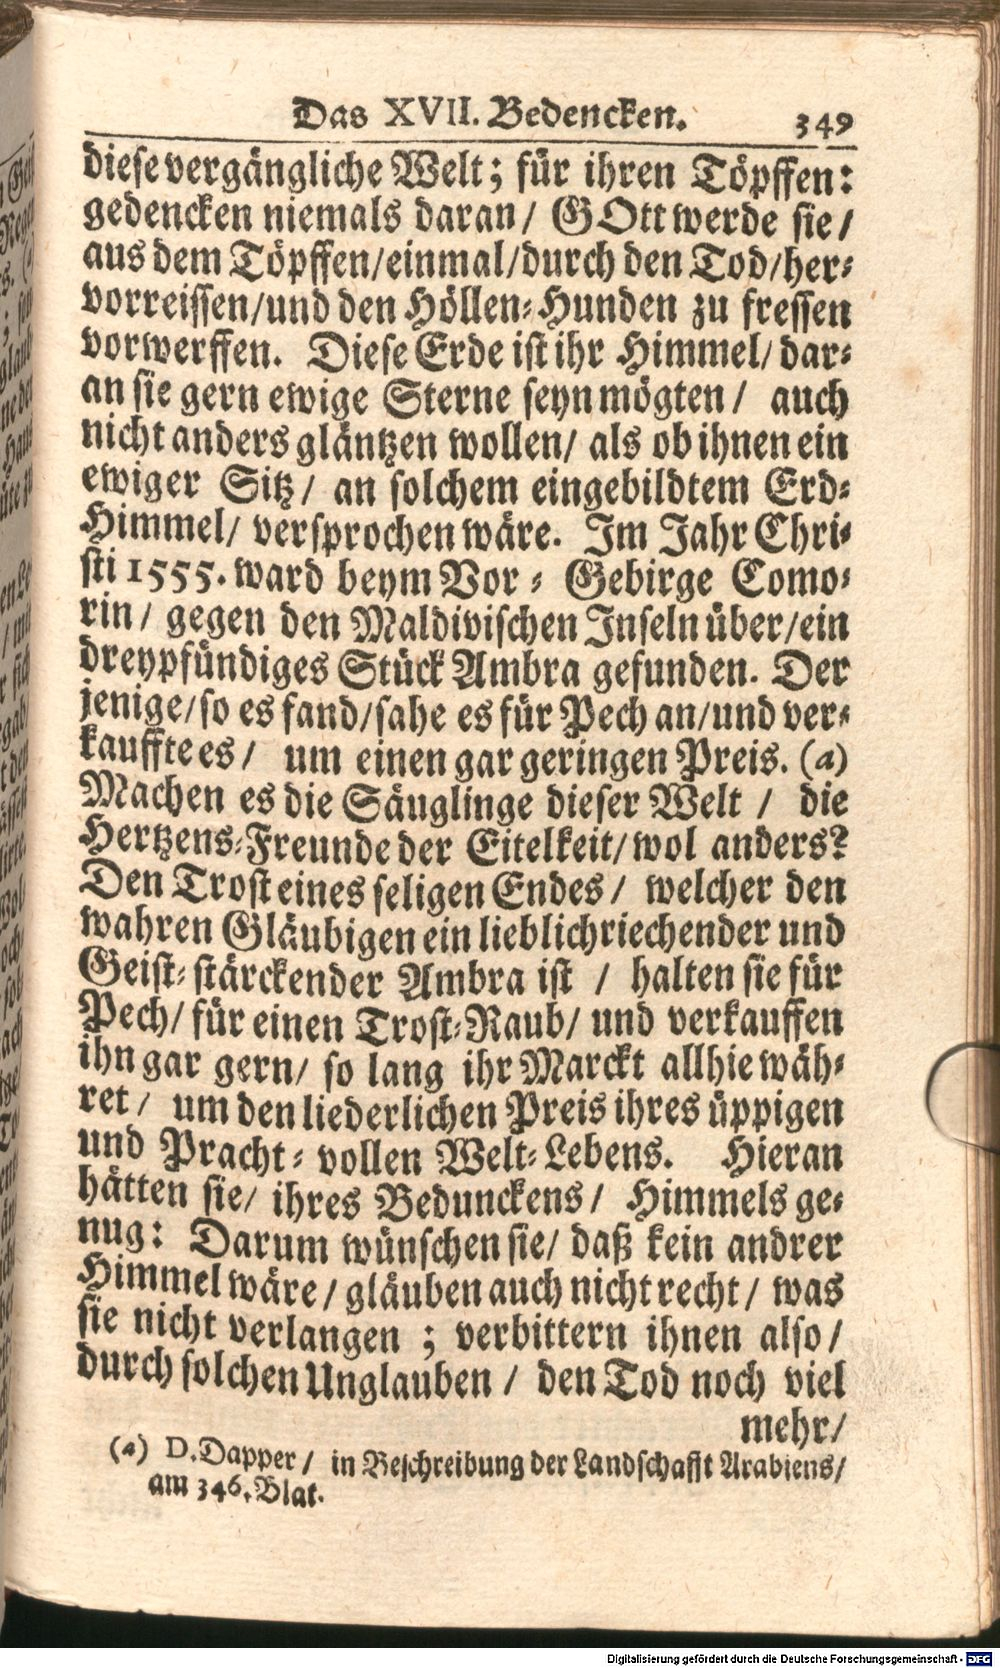 Das XVII. Bedencken. 349
diese vergängliche Welt; für ihren Töpffen:
gedencken niemals daran/ GOtt werde sie/
aus dem Töpffen/einmal/durch den Tod/her-
vorreissen/und den Höllen-Hunden zu fressen
vorwerffen. Diese Erde ist ihr Himmel/ dar-
an sie gern ewige Sterne seyn mögten/ auch
nicht anders gläntzen wollen/ als ob ihnen ein
ewiger Sitz/ an solchem eingebildtem Erd-
Himmel/ versprochen wäre. Im Jahr Chri-
sti 1555. ward beym Vor-Gebirge Como-
rin/ gegen den Maldivischen Inseln über/ein
dreypfündiges Stück Ambra gefunden. Der
jenige/so es fand/sahe es für Pech an/und ver-
kauffte es/ um einen gar geringen Preis. (a)
Machen es die Säuglinge dieser Welt / die
Hertzens-Freunde der Eitelkeit/wol anders?
Den Trost eines seligen Endes/ welcher den
wahren Gläubigen ein lieblichriechender und
Geist-stärckender Ambra ist / halten sie für
Pech/ für einen Trost-Raub/ und verkauffen
ihn gar gern/ so lang ihr Marckt allhie wäh-
ret/ um den liederlichen Preis ihres üppigen
und Pracht-vollen Welt-Lebens. Hieran
hätten sie/ ihres Bedunckens/ Himmels ge-
nug: Darum wünschen sie/ daß kein andrer
Himmel wäre/gläuben auch nicht recht/ was
sie nicht verlangen; verbittern ihnen also/
durch solchen Unglauben/ den Tod noch viel
mehr/
(a) D. Dapper/ in Beschreibung der Landschafft Arabiens/
am 346. Blat.
Digitalisierung gefördert durch die Deutsche Forschungsgemeinschaft - DFG